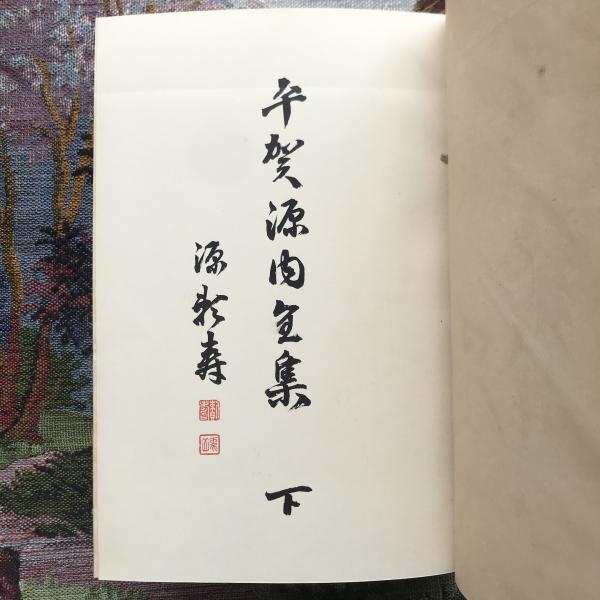 平賀源内全集 下
源頼寿